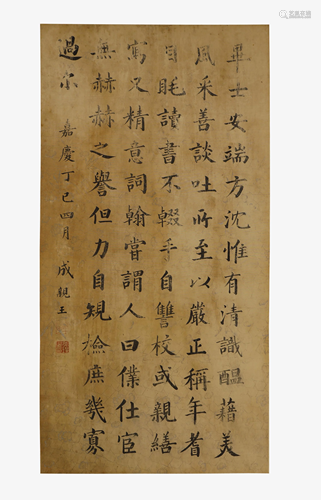 畢士安端方沈惟有清識醞藉美
風采善談吐所至以嚴正稱年耆
目眊讀書不輟手自讎校或親繕
寫又精意詞翰嘗謂人曰僕仕宦
無赫赫之譽但力自規檢庶幾寡
過尔 嘉慶丁巳四月 成親王